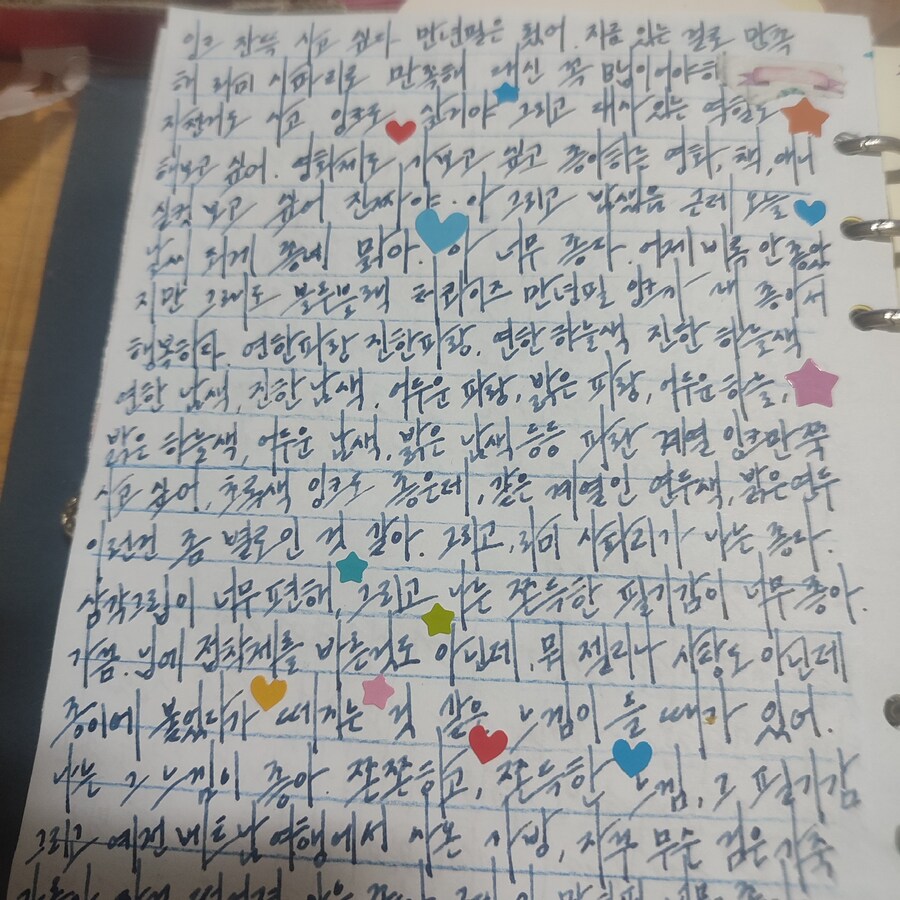 잉크 잔뜩 사고 싶다. 만년필은 됐어. 지금 있는 걸로 만족
해 라미 사파리로 만족해 대신 꼭 B닙이어야해
자전거도 사고 잉크도 살거야 그리고 대사 있는 역할도
해보고 싶어. 영화제도 가보고 싶고 좋아하는 영화, 책, 애니
실컷 보고 싶어 진짜야. 아 그리고 밥먹음 근데 오늘
날씨 되게 좋네 맑아. 아 너무 좋다. 어제 비록 안좋았
지만 그래도 블루블랙 터콰이즈 만년필 잉크가 새 좋아서
행복하다. 연한파랑 진한파랑, 연한하늘색 진한 하늘색
연한 남색, 진한남색, 어두운 파랑, 밝은 파랑, 어두운하늘,
밝은 하늘색, 어두운 남색, 밝은 남색 등등 파란 계열 잉크만 쭉
사고 싶어, 초록색 잉크도 좋은데, 같은 계열인 연두색, 밝은연두
이런건 좀 별로인 것 같아. 그리고, 라미 사파리가 나는 좋다.
삼각그립이 너무 편해, 그리고 나는 쫀득한 필기감이 너무 좋아.
가끔. 닙에 접착제를 바른것도 아닌데, 뭐 젤리나 사탕도 아닌데
종이에 붙었다가 떼지는 것 같은 느낌이 들 때가 있어.
나는 그 느낌이 좋아. 쫀쫀하고, 쫀득한 느낌, 그 필기감
그리고 예전 베트남여행에서 사온 가방, 자주 무슨 검은 가죽